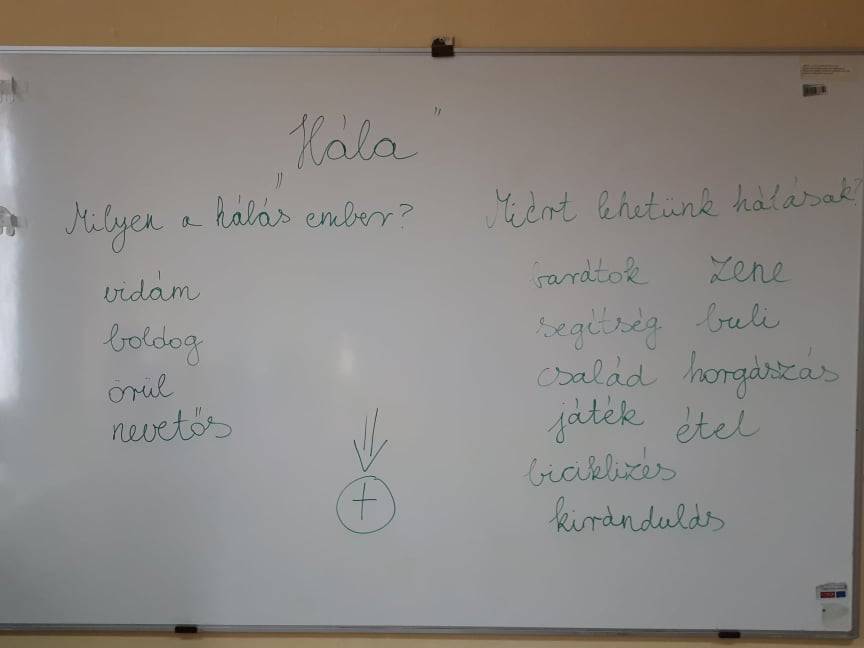 „Hála”
Milyen a hálás ember?
vidám
boldog
örül
nevetős
Miért lehetünk hálásak?
barátok zene
segítség buli
család horgászás
játék étel
biciklizés
kirándulás
+